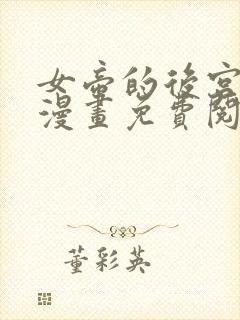 女帝的後宮
漫畫免費閱
董彩英